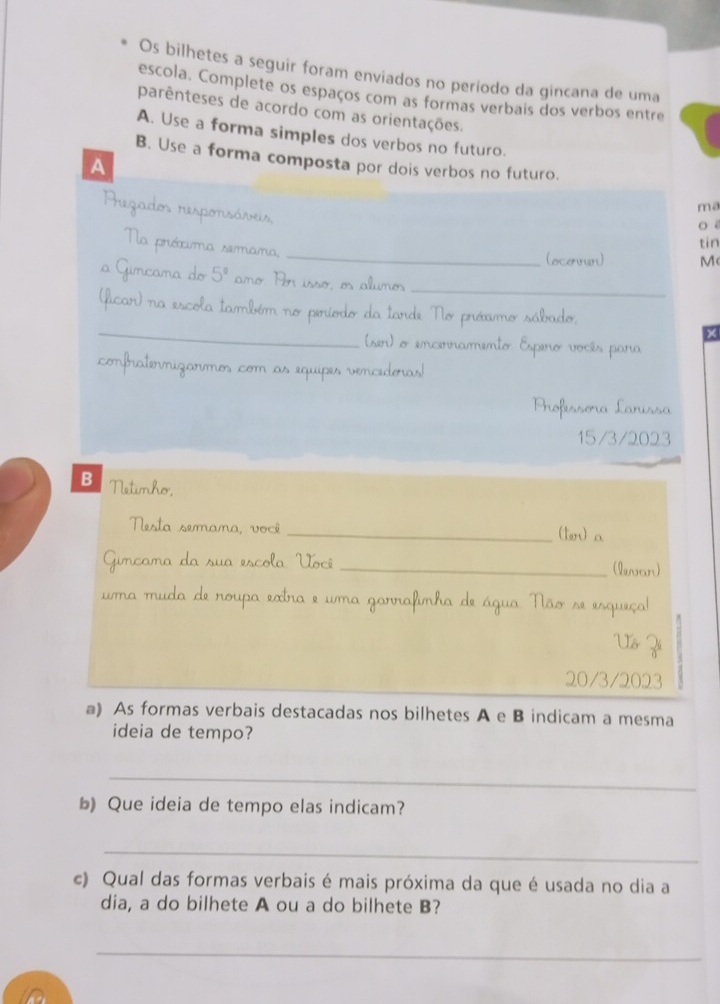 • Os bilhetes a seguir foram enviados no período da gincana de uma
escola. Complete os espaços com as formas verbais dos verbos entre
parênteses de acordo com as orientações.
A. Use a forma simples dos verbos no futuro.
B. Use a forma composta por dois verbos no futuro.
A
Prezados responsáveis,
Na próxima semana, ____________ (ocorrer)
a Gincana do 5º ano. Por isso, os alunos ____________
(ficar) na escola também no período da tarde. No próximo sábado,
____________ (ser) o encerramento. Espero vocês para
confraternizarmos com as equipes vencedoras!
Professora Larissa
15/3/2023
B
Netinho,
Nesta semana, você ____________ (ter) a
Gincana da sua escola. Você ____________ (levar)
uma muda de roupa extra e uma garrafinha de água. Não se esqueça!
Vô Zé
20/3/2023
a) As formas verbais destacadas nos bilhetes A e B indicam a mesma
ideia de tempo?
b) Que ideia de tempo elas indicam?
c) Qual das formas verbais é mais próxima da que é usada no dia a
dia, a do bilhete A ou a do bilhete B?